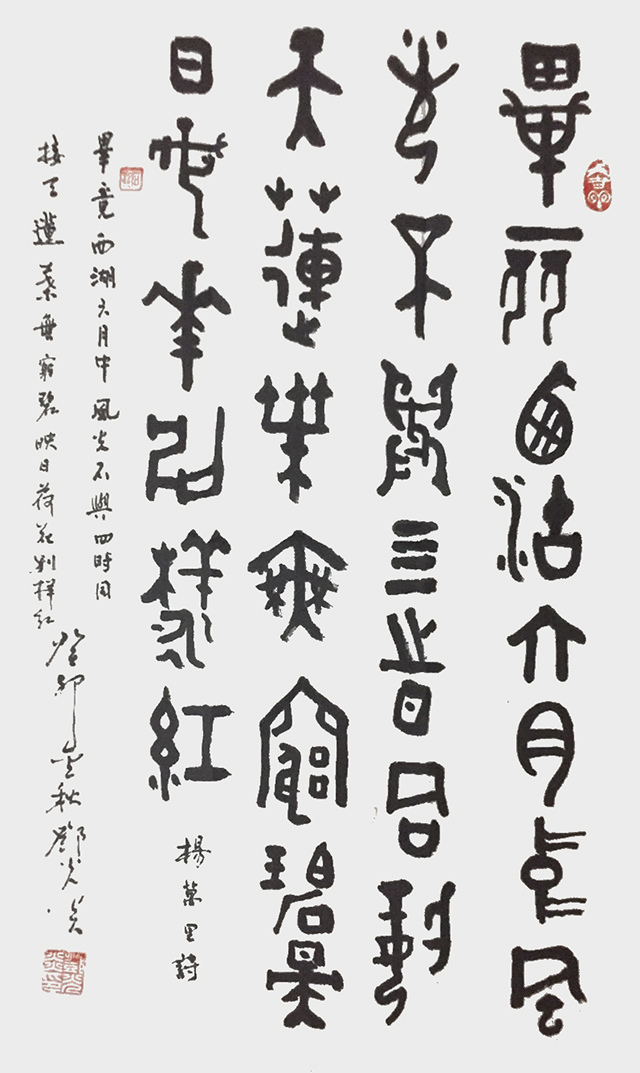 畢竟西湖六月中風
光不與四時同接
天蓮葉無窮碧映
日荷花別樣紅
楊萬里詩
畢竟西湖六月中風光不與四時同
接天蓮葉無窮碧映日荷花別樣紅
癸卯金秋鄧光